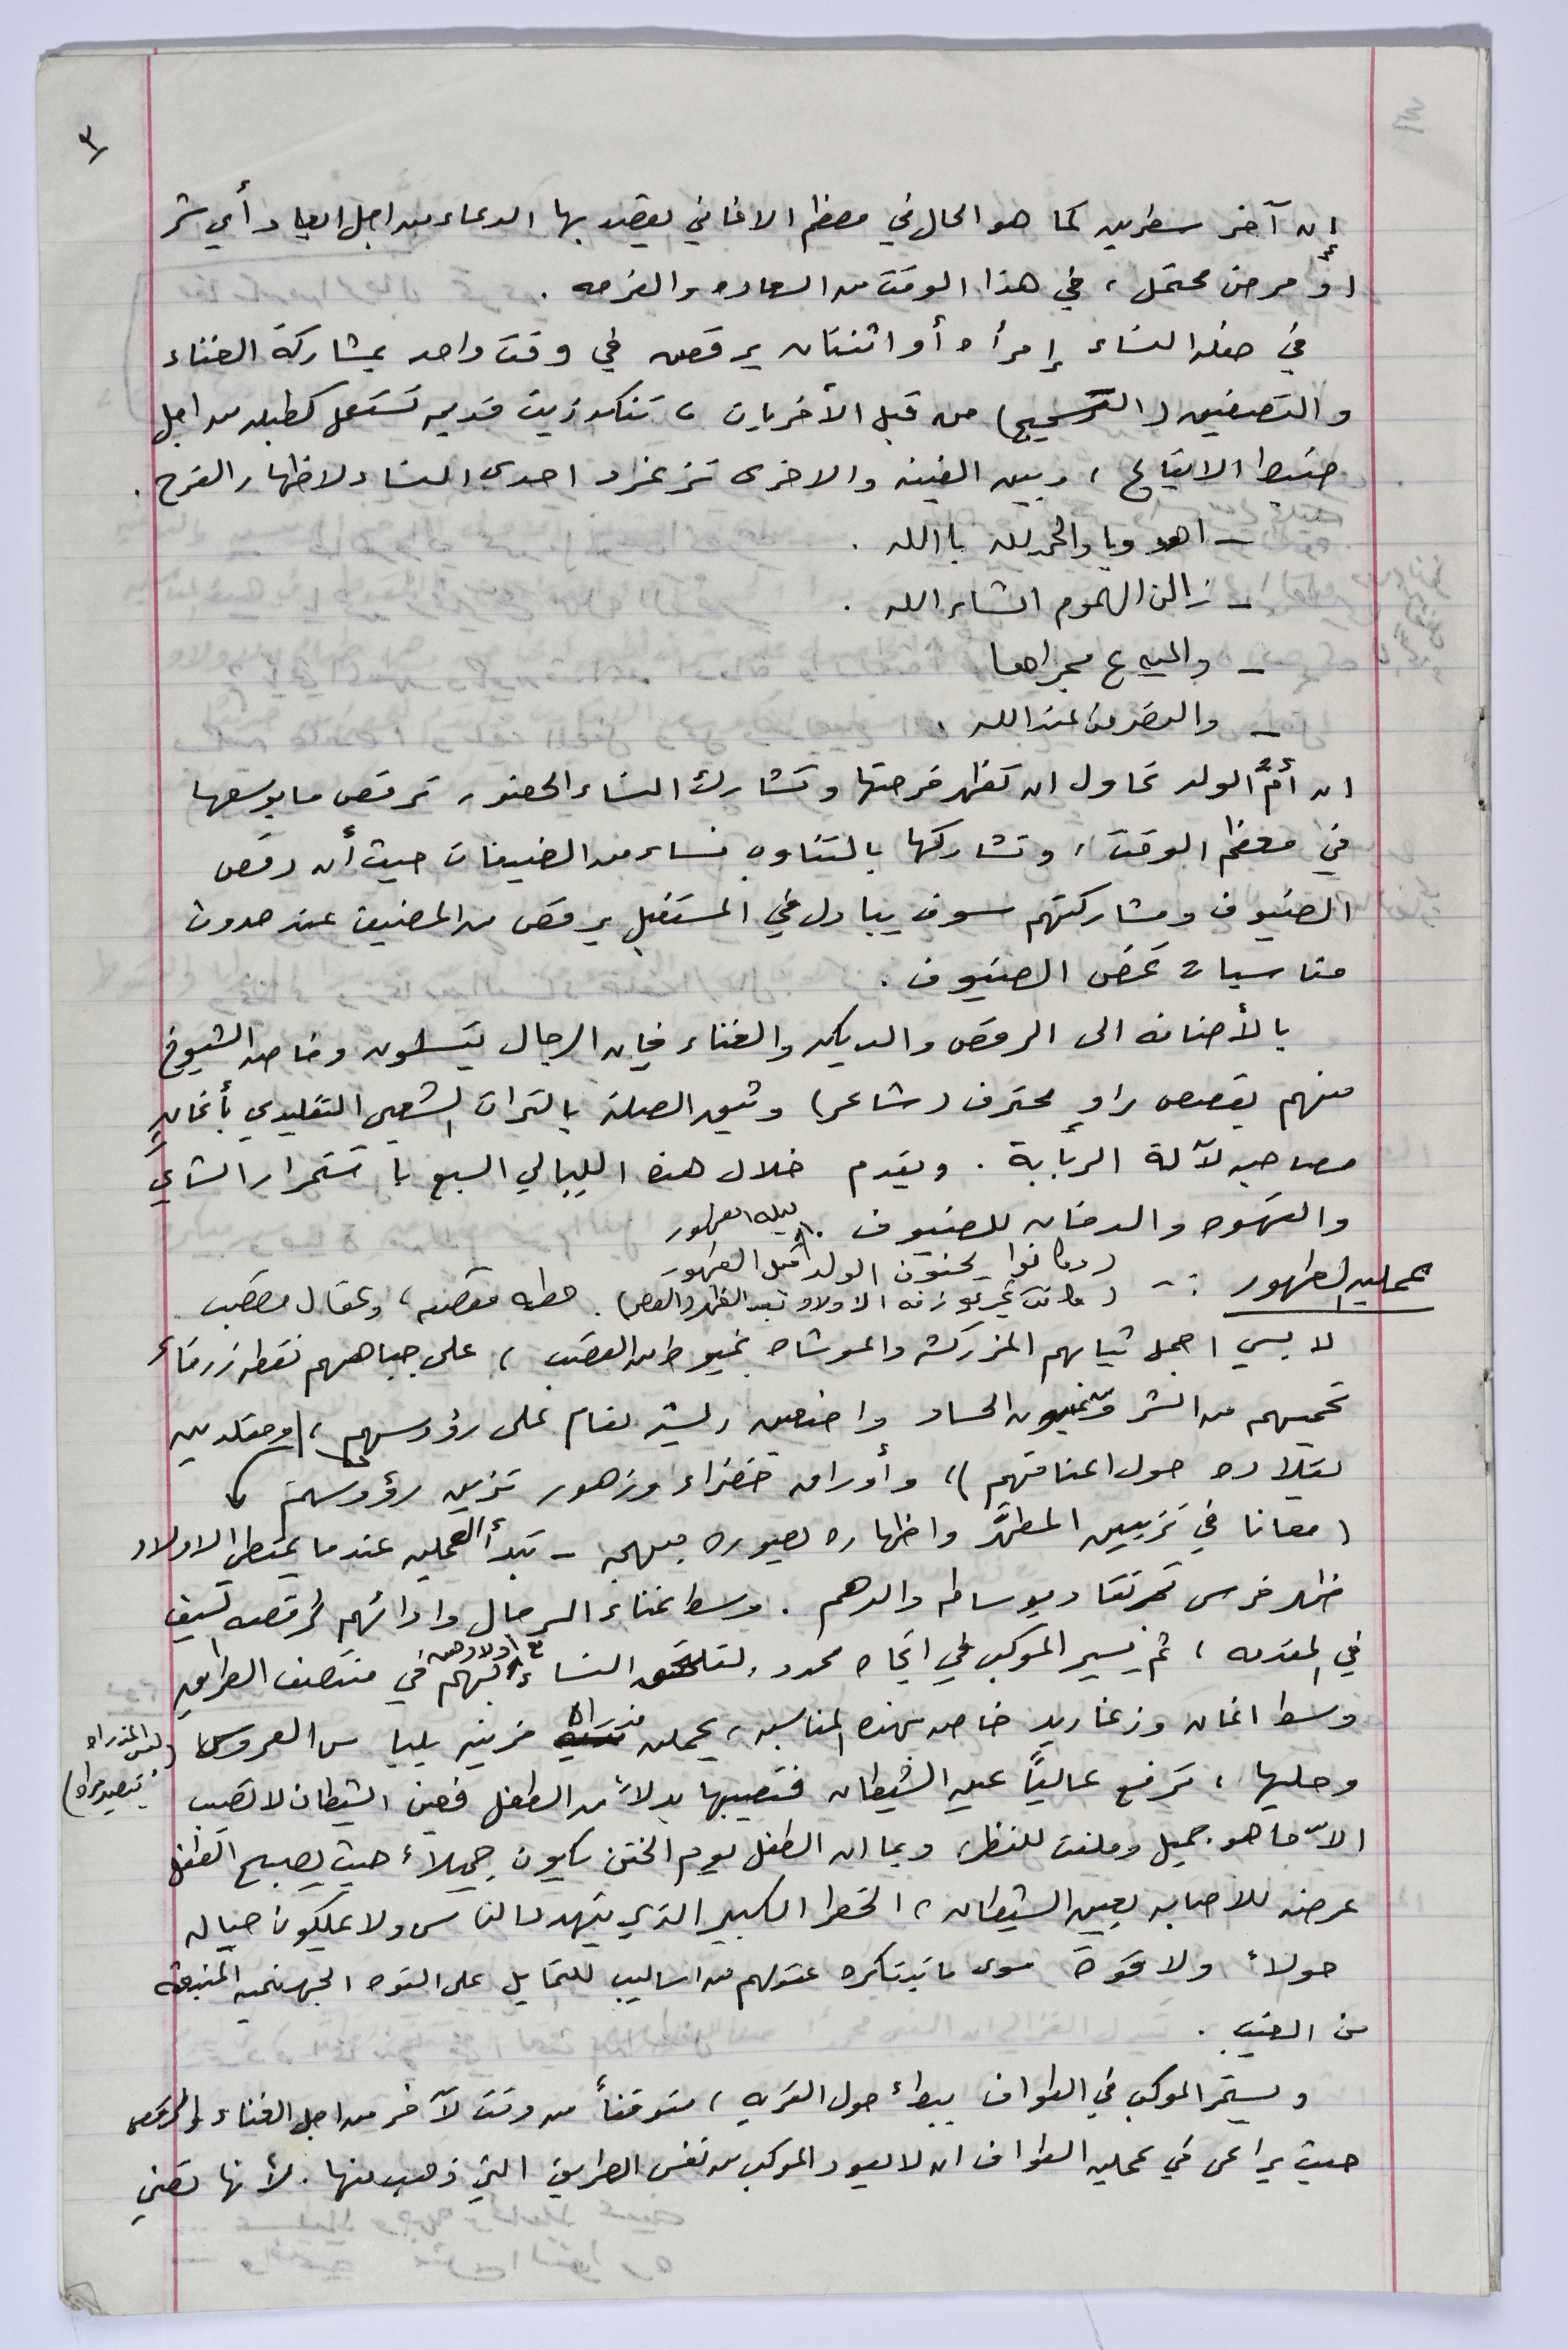 ٣
إن آخر سطرين كما هو الحال في معظم الاغاني يقصد بها الدعاء من اجل ابعاد أي شر
أو مرض محتمل ، في هذا الوقت من السعاده والفرحه .
في حفلة النساء إمرأه أو اثنتان يرقصن في وقت واحد بمشاركة الغناء
والتصفيق (التسحيج) من قبل الأخريات ، تنكه زيت قديمه تستعمل كطبله من اجل
ضبط الايقاع ، وبين الفينه والاخرى تزغرد احدى النساء لاظهار الفرح .
- اهه ويا والحمدلله يا الله .
- زالن الهموم انشاء الله .
- والميه ع مجراها
- والنصر من عند الله .
ان أمَّ الولد تحاول ان تظهر فرحتها وتشارك النساء الحضور ، ترقص ما بوسعها
في معظم الوقت ، وتشاركها بالتناوب نساء من الضيفات حيث أن رقص
الضيوف ومشاركتهم سوف يبادل في المستقبل برقص من المضيف عند حدوث
مناسبات تخص الضيوف .
بالأضافه الى الرقص والدبكه والغناء فإن الرجال يتسلون وخاصه الشيوخ
منهم بقصص راوٍ محترف (شاعر) وثيق الصلة بالتراث الشعبي التقليدي بأغانٍ
مصاحبه لآلة الربابة . ويقدم خلال هذه الليالي السبع باستمرار الشاي
والقهوه والدخان للضيوف .
ليله الطهور
عملية الطهور :- (وكانوا يحنون الولد قبل الطهور
(كانت تجري زفه الاولاد بعد الظهر والعصر) . حطه مقصبه ، وعقال مقصب
لابسي اجمل ثيابهم المزركشه والموشاه بخيوط من القصب ، على جباههم نقطه زرقاء
تحميهم من الشر وعيون الحساد واضعين ريش نعام على رؤوسهم ، ومقلدين
بقلاده حول اعناقهم )، وأوراق خضراء وزهور تزين رؤوسهم
امعانا في تزيين المطهَّر واظهاره بصوره مبهجه - تبدأ العمليه عندما يمتطي الاولاد
ظهر فرس تقتاد بوساطه والدهم . وسط غناء الرجال وادائهم لرقصه السيف
في المقدمه ، ثم يسير الموكب في اتجاه محدد ، لتلتحق النساء بهم في منتصف الطريق
مع اولادهن
وسط اغان وزغاريد خاصه بهذه المناسبه ، يحملن مزينه بلباس العروس
وحليها ، ترفع عالياً عين الشيطان فتصيبها بدلاً من الطفل فعين الشيطان لا تصيب
الاّ ما هو جميل وملفت للنظر ، وبما ان الطفل يوم الختن يكون جميلاً حيث يصبح الطفل
عرضه للاصابه بعين الشيطان ، الخطر الكبير الذي يتهدد الناس ولا يملكون حياله
حولاً ولا قوة سوى ما تبتكره عقولهم من اساليب للتحايل على القوه الجهنميه المنبعثه
من الغيب .
ويستمر الموكب في الطواف ببطء حول القريه ، متوقفاً من وقت لآخر من اجل الغناء والرقص
حيث يراعى في عمليه الطواف ان لا يعود الموكب من نفس الطريق التي ذهب منها . لأنها تعني